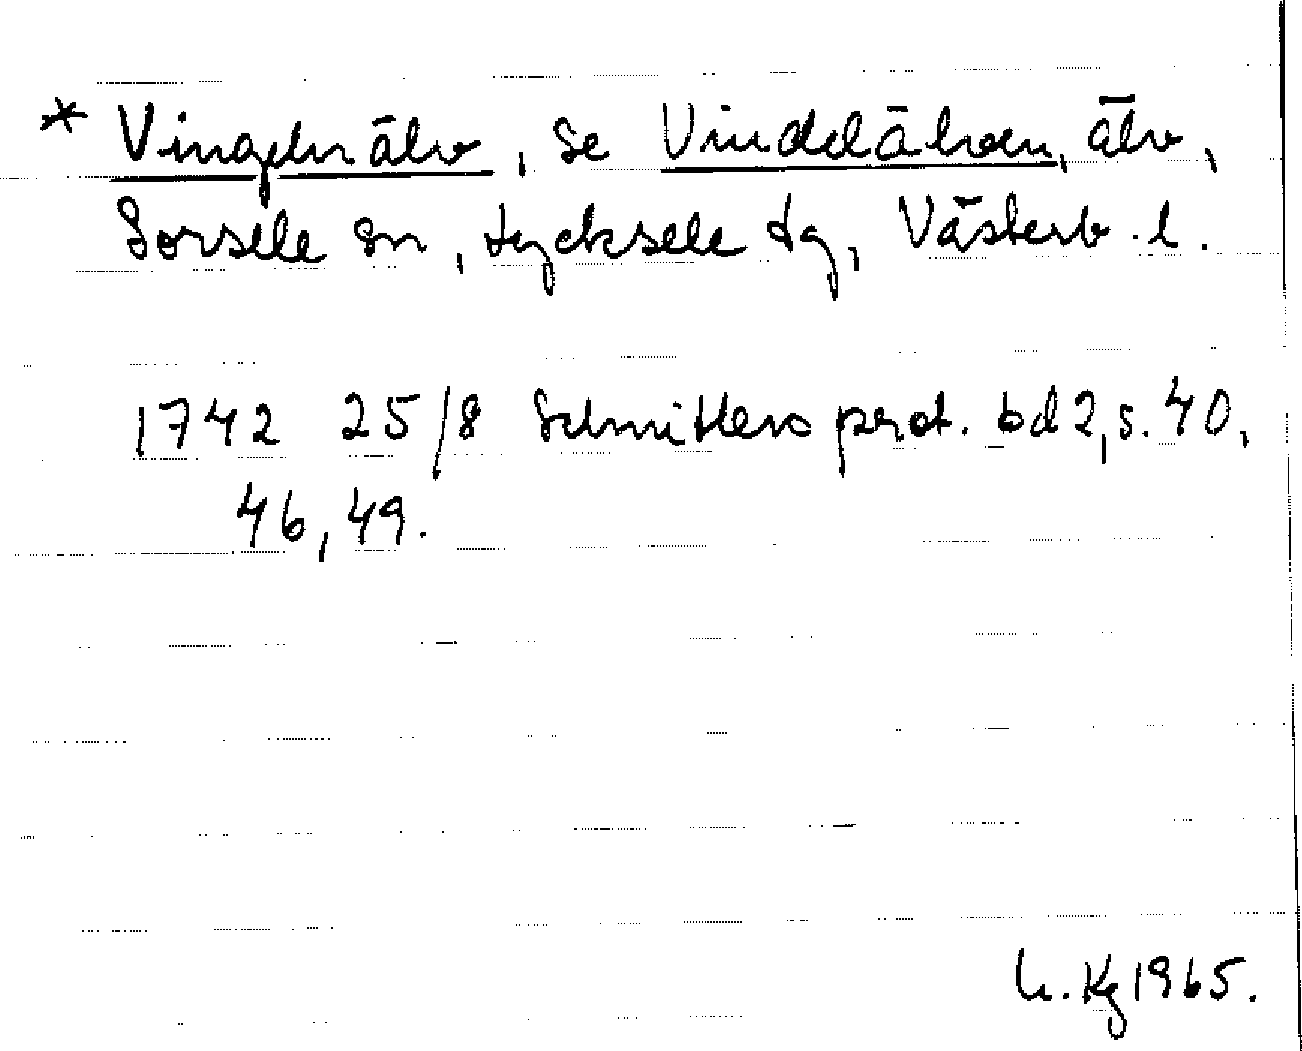 * Vingelnälv, se Vindelälven, älv,
Sorsele sn, Lycksele tg, Västerb. l.
1742 25/8 Schnitlers prot. bd 2, s. 40,
46, 49.
Kg 1965.